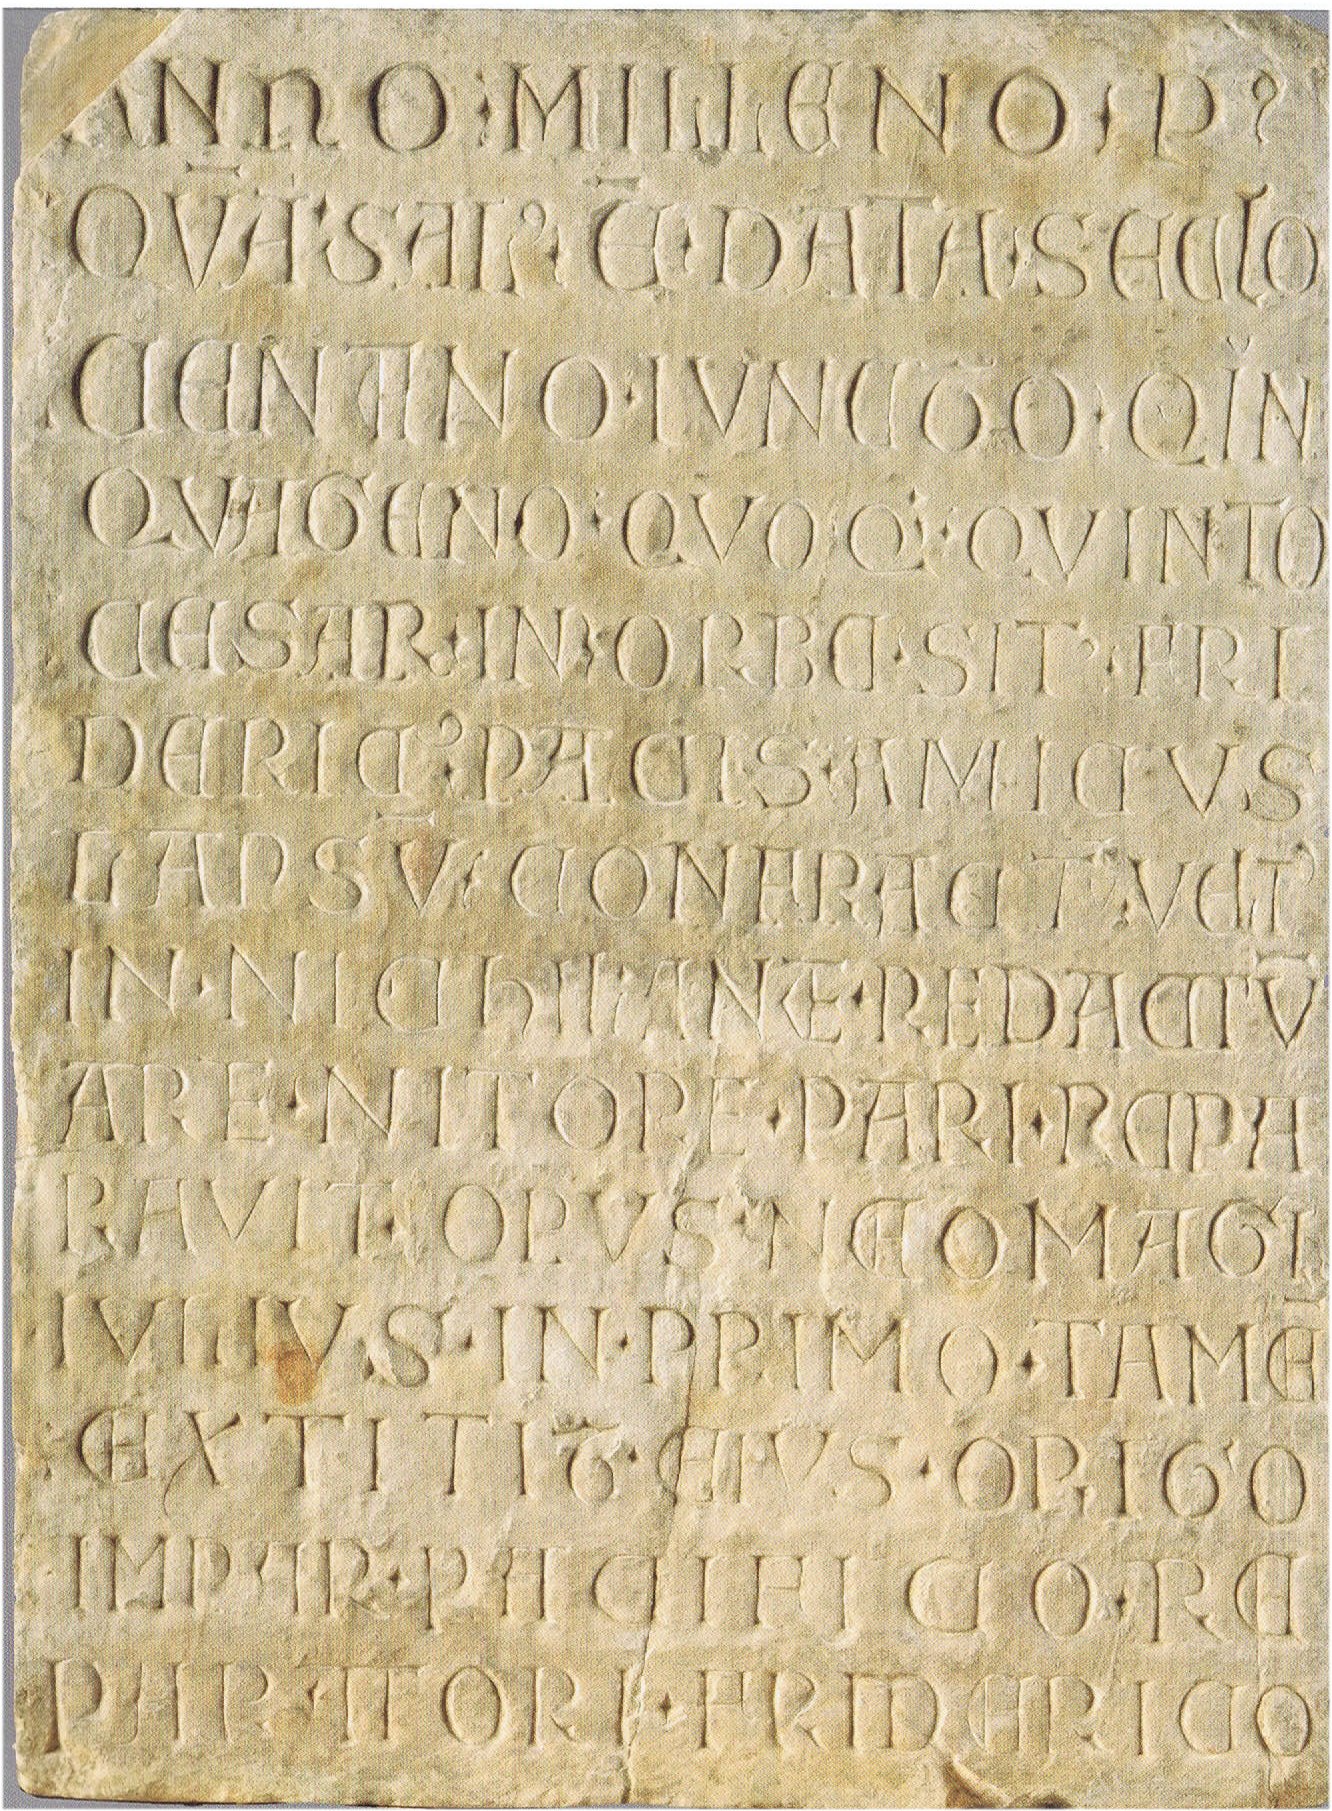 ANNO · MILLENO · P⁹
QVĀ · SALꝰ · Ē · DATA · SECLO
CENTENO · IVNCTO · QǏN
QVAGENO · QVOQ' · QVINTO
CESAR · IN · ORBE · SIT⁹ · FRI
DERIC⁹ · PACIS · AMICVS
LAPSV̄ · CONFRACT' · VET'
IN · NICHIL · ANTE · REDACTV̄
ARE · NITORE · PARI · REPA
RAVIT · OPVS · NEOMAGI
IVLIVS · IN · PRIMO · TAMĒ
EXTITIT · EIVS · ORIGO
IMPAR · PACIFICO · RE
PARATORI · FRIDERICO